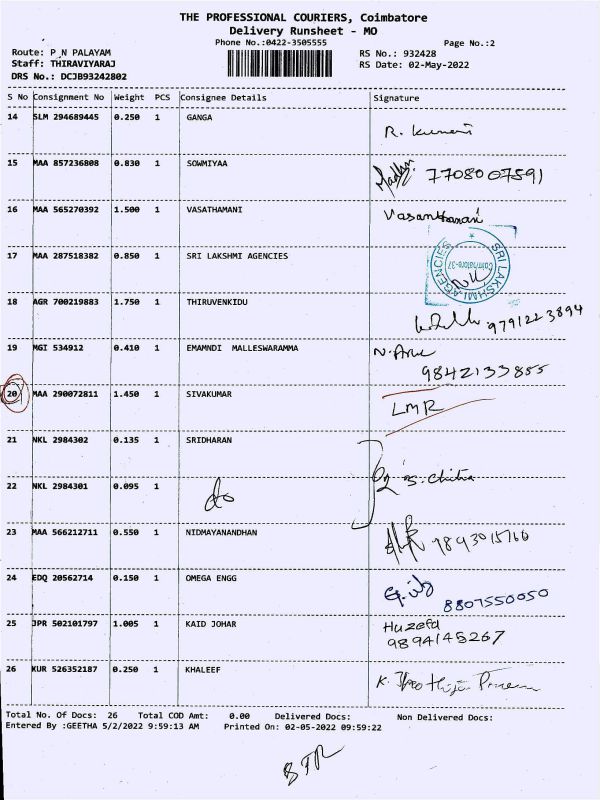 THE PROFESSIONAL COURIERS, Coimbatore
Delivery Runsheet - MO
Phone No.:0422-3505555
Page No.:2
Route: P N PALAYAM
RS No.: 932428
Staff: THIRAVIYARAJ
RS Date: 02-May-2022
DRS No.: DCJB93242802
S No Consignment No Weight PCS Consignee Details Signature
14 SLM 294689445 0.250 1 GANGA R. Kumari
15 MAA 857236808 0.830 1 SOWMIYAA 7708007591
16 MAA 565270392 1.500 1 VASATHAMANI Vasanthamani
17 MAA 287518382 0.850 1 SRI LAKSHMI AGENCIES
SRI LAKSHMI AGENCIES
Coimbatore-37
18 AGR 700219883 1.750 1 THIRUVENKIDU 9791223894
19 MGI 534912 0.410 1 EMAMNDI MALLESWARAMMA N. Arul
9842133855
20 MAA 290072811 1.450 1 SIVAKUMAR LMR
21 NKL 2984302 0.135 1 SRIDHARAN
S. Chitra
22 NKL 2984301 0.095 1 do
23 MAA 566212711 0.550 1 NIDMAYANANDHAN 9893015766
24 EDQ 20562714 0.150 1 OMEGA ENGG
8807550050
25 JPR 502101797 1.005 1 KAID JOHAR Huzefa
9894145267
26 KUR 526352187 0.250 1 KHALEEF K.
Total No. Of Docs: 26 Total COD Amt: 0.00 Delivered Docs: Non Delivered Docs:
Entered By :GEETHA 5/2/2022 9:59:13 AM Printed On: 02-05-2022 09:59:22